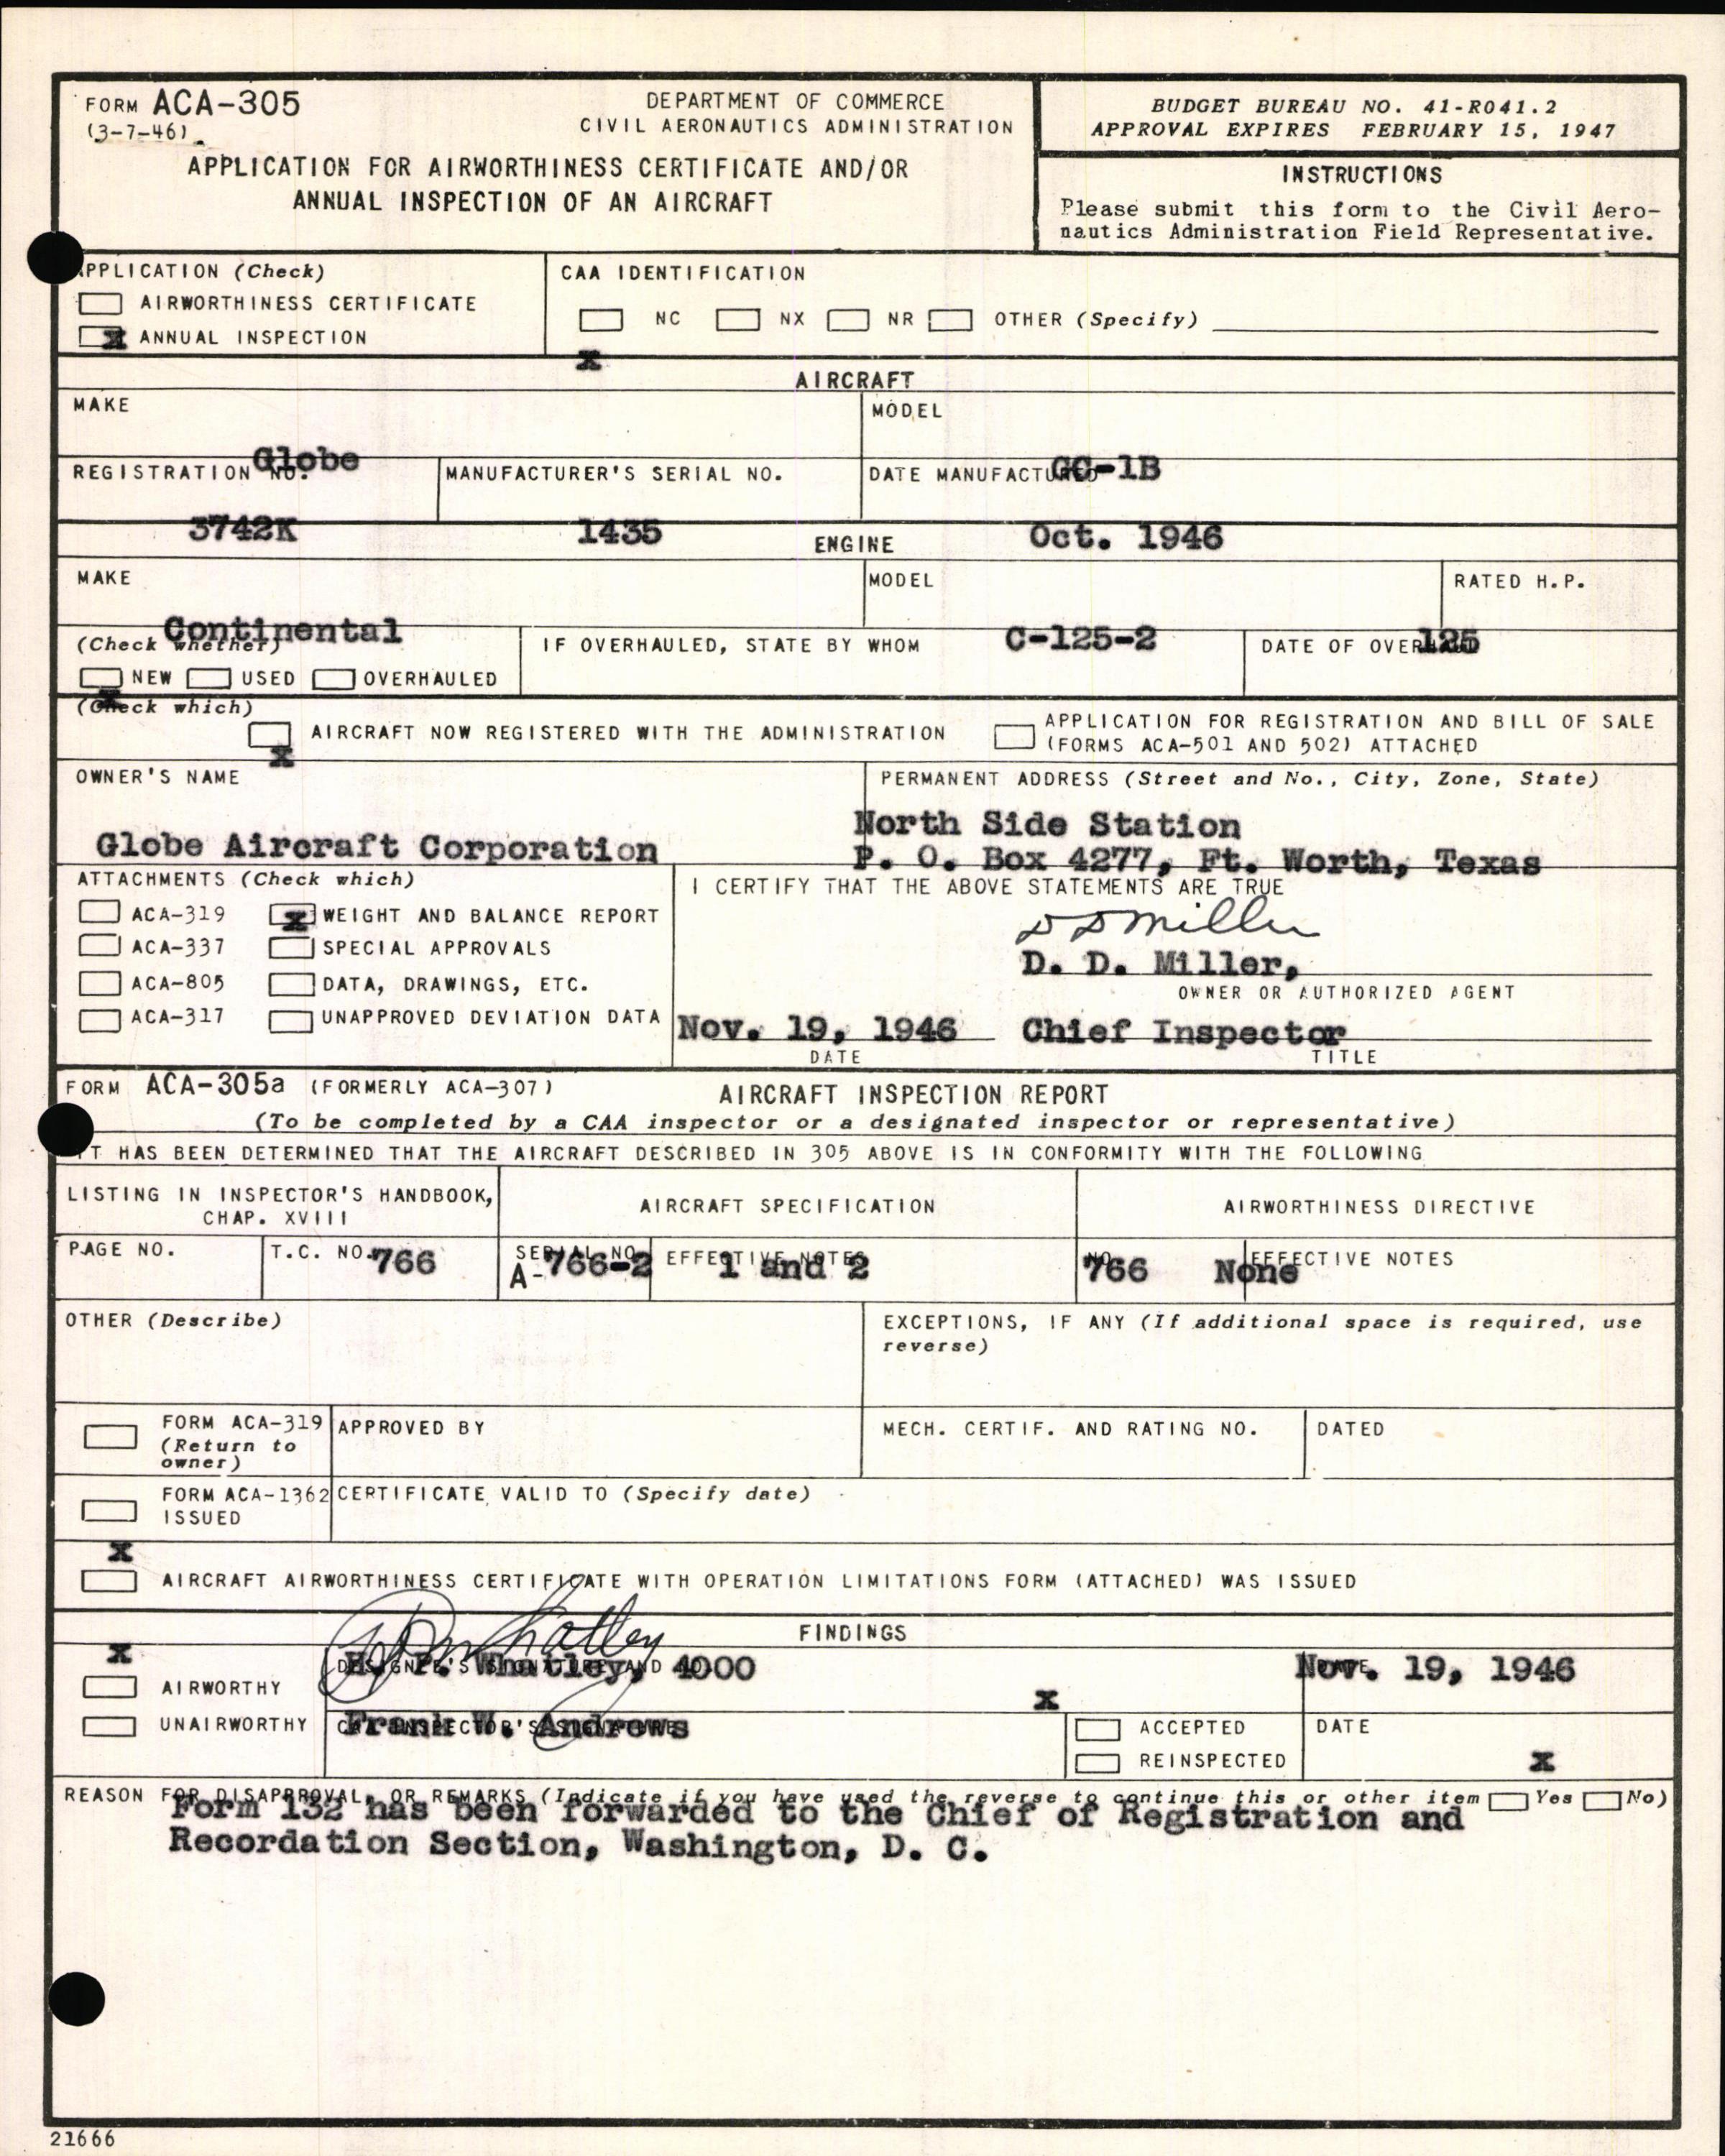 FORM ACA-305
(3-7-46)
DEPARTMENT OF COMMERCE
CIVIL AERONAUTICS ADMINISTRATION
APPLICATION FOR AIRWORTHINESS CERTIFICATE AND/OR
ANNUAL INSPECTION OF AN AIRCRAFT
BUDGET BUREAU NO. 41-R041.2
APPROVAL EXPIRES FEBRUARY 15, 1947
INSTRUCTIONS
Please submit this form to the Civil Aero-
nautics Administration Field Representative.
APPLICATION (Check)
AIRWORTHINESS CERTIFICATE
X ANNUAL INSPECTION
CAA IDENTIFICATION
NC NX NR OTHER (Specify)
X
AIRCRAFT
MAKE
Globe
MODEL
GC-1B
REGISTRATION NO.
3742K
MANUFACTURER'S SERIAL NO.
1435
DATE MANUFACTURED
Oct. 1946
ENGINE
MAKE
Continental
MODEL
C-125-2
RATED H.P.
125
(Check whether)
NEW USED OVERHAULED
X
IF OVERHAULED, STATE BY WHOM
DATE OF OVERHAUL
(Check which)
AIRCRAFT NOW REGISTERED WITH THE ADMINISTRATION
X
APPLICATION FOR REGISTRATION AND BILL OF SALE
(FORMS ACA-501 AND 502) ATTACHED
OWNER'S NAME
Globe Aircraft Corporation
PERMANENT ADDRESS (Street and No., City, Zone, State)
North Side Station
P. O. Box 4277, Ft. Worth, Texas
ATTACHMENTS (Check which)
ACA-319 X WEIGHT AND BALANCE REPORT
ACA-337 SPECIAL APPROVALS
ACA-805 DATA, DRAWINGS, ETC.
ACA-317 UNAPPROVED DEVIATION DATA
I CERTIFY THAT THE ABOVE STATEMENTS ARE TRUE
D D Miller
D. D. Miller,
OWNER OR AUTHORIZED AGENT
Nov. 19, 1946 Chief Inspector
DATE TITLE
FORM ACA-305a (FORMERLY ACA-307) AIRCRAFT INSPECTION REPORT
(To be completed by a CAA inspector or a designated inspector or representative)
IT HAS BEEN DETERMINED THAT THE AIRCRAFT DESCRIBED IN 305 ABOVE IS IN CONFORMITY WITH THE FOLLOWING
LISTING IN INSPECTOR'S HANDBOOK,
CHAP. XVIII
AIRCRAFT SPECIFICATION
AIRWORTHINESS DIRECTIVE
PAGE NO.
T.C. NO. 766
SERIAL NO.
A-766-2
EFFECTIVE NOTES
1 and 2
NO.
766
EFFECTIVE NOTES
None
OTHER (Describe)
EXCEPTIONS, IF ANY (If additional space is required, use
reverse)
FORM ACA-319
(Return to
owner)
APPROVED BY
MECH. CERTIF. AND RATING NO.
DATED
FORM ACA-1362
ISSUED
CERTIFICATE VALID TO (Specify date)
X
AIRCRAFT AIRWORTHINESS CERTIFICATE WITH OPERATION LIMITATIONS FORM (ATTACHED) WAS ISSUED
FINDINGS
X
AIRWORTHY
UNAIRWORTHY
DESIGNEE'S SIGNATURE AND NO.
Whatley, 4000
DATE
Nov. 19, 1946
CAA INSPECTOR'S SIGNATURE
Frank W. Andrews
X
ACCEPTED
REINSPECTED
DATE
X
REASON FOR DISAPPROVAL, OR REMARKS (Indicate if you have used the reverse to continue this or other item Yes No)
Form 132 has been forwarded to the Chief of Registration and
Recordation Section, Washington, D. C.
21666